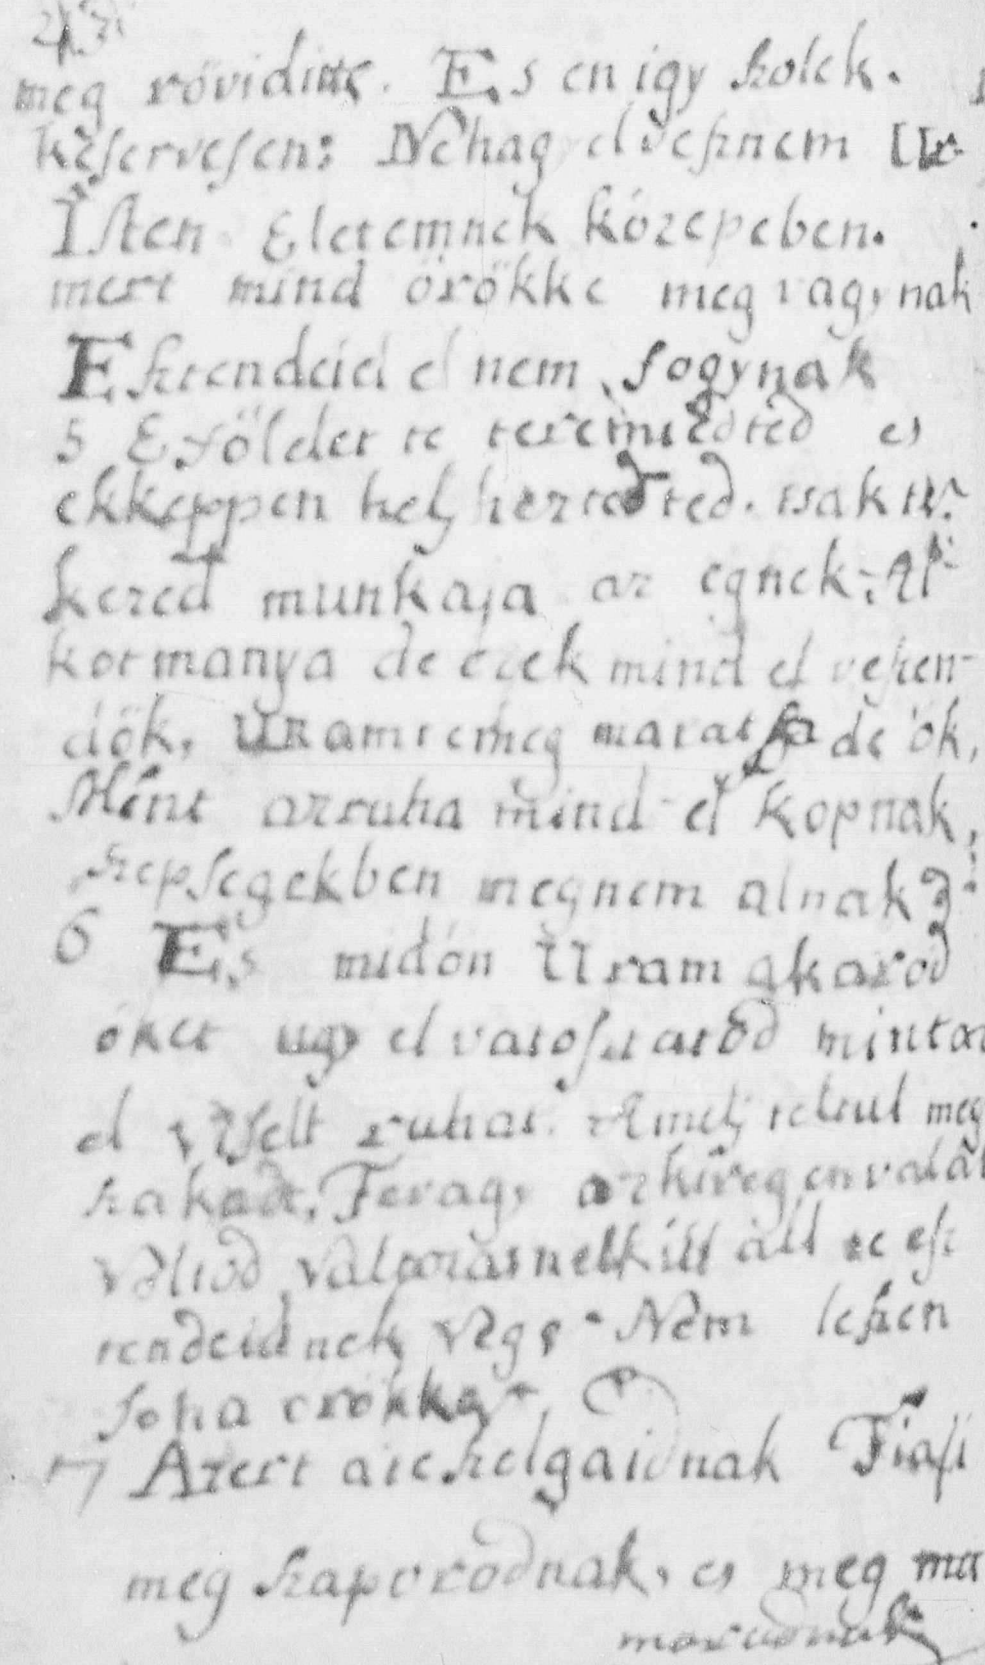 meg röviditte. Es en igy szolek.
keservesen: Ne hagy elvesznem Ur
Isten Eletemnek közepeben.
mert mind örökke meg vagynak
Esztendeid el nem fogynak
5 E földet te teremtedted es
ekkeppen helyheztedted. tsak te
kezed munkaja az egnek: Al
kotmanya de ezek mind el veszen-
dök, URam te meg maratsz de ök,
Mint az ruha mind el kopnak,
szepsegekben meg nem alnak
6 Es midön Uram akarod
öket ugy el valtoztatod mint az
el viselt ruhat. Amely teliul meg
szakadt, Te vagy az ki regenvalat
Voltod valtozas nelkill all te esz
tendeidnek vege Nem leszen
soha örökke
7 Azert a te szolgaidnak Fiaji
meg szaporodnak, es meg ma
maradnak